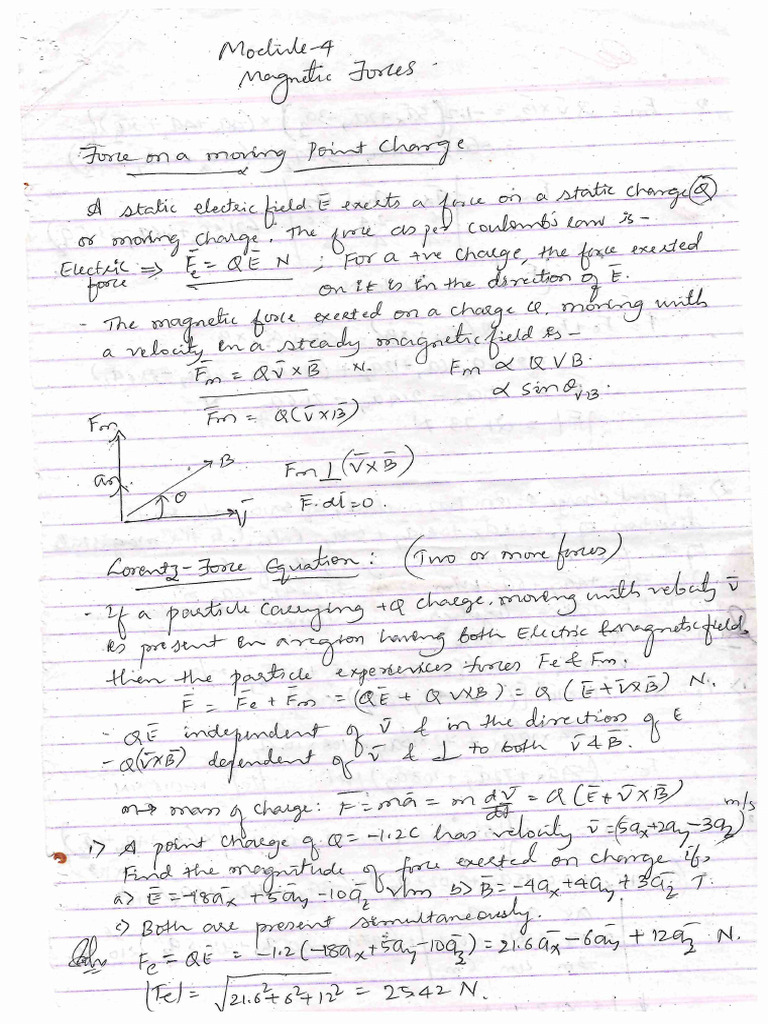 Module-4
Magnetic Forces
Force on a moving Point Charge
A static electric field Ē exerts a force on a static charge Q
or moving charge. The force as per Coulomb's law is -
Electric force ⇒ F̄e = QĒ N ; For a +ve charge, the force exerted
on it is in the direction of Ē.
- The magnetic force exerted on a charge Q, moving with
a velocity in a steady magnetic field is -
F̄m = Qv̄ × B̄ N. Fm ∝ QVB.
∝ sinθvB.
F̄m = Q(v̄×B̄)
Fm
an
B
θ
v̄
Fm ⊥ (v̄×B̄)
F̄.dl̄=0.
Lorentz-Force Equation: (Two or more forces)
- If a particle carrying +Q charge, moving with velocity v̄
is present in a region having both Electric & magnetic field,
then the particle experiences forces Fe & Fm.
F̄ = F̄e + F̄m = (QĒ + Q v×B) = Q (Ē+v̄×B̄) N.
- QĒ independent of v̄ & in the direction of E
- Q(v̄×B̄) dependent of v̄ & ⊥ to both v̄ & B̄.
m → mass of charge: F̄ = mā = m dv̄/dt = Q(Ē+v̄×B̄)
1) A point charge of Q=-1.2C has velocity v̄=(5ax+2ay-3az) m/s
Find the magnitude of force exerted on charge if,
a) Ē=-18āx+5āy-10āz V/m b) B̄=-4ax+4ay+3āz T.
c) Both are present simultaneously.
Soln F̄e = QĒ = -1.2(-18ax+5āy-10āz)=21.6āx-6āy+12āz N.
|Fe| = √21.6²+6²+12² = 25.42 N.